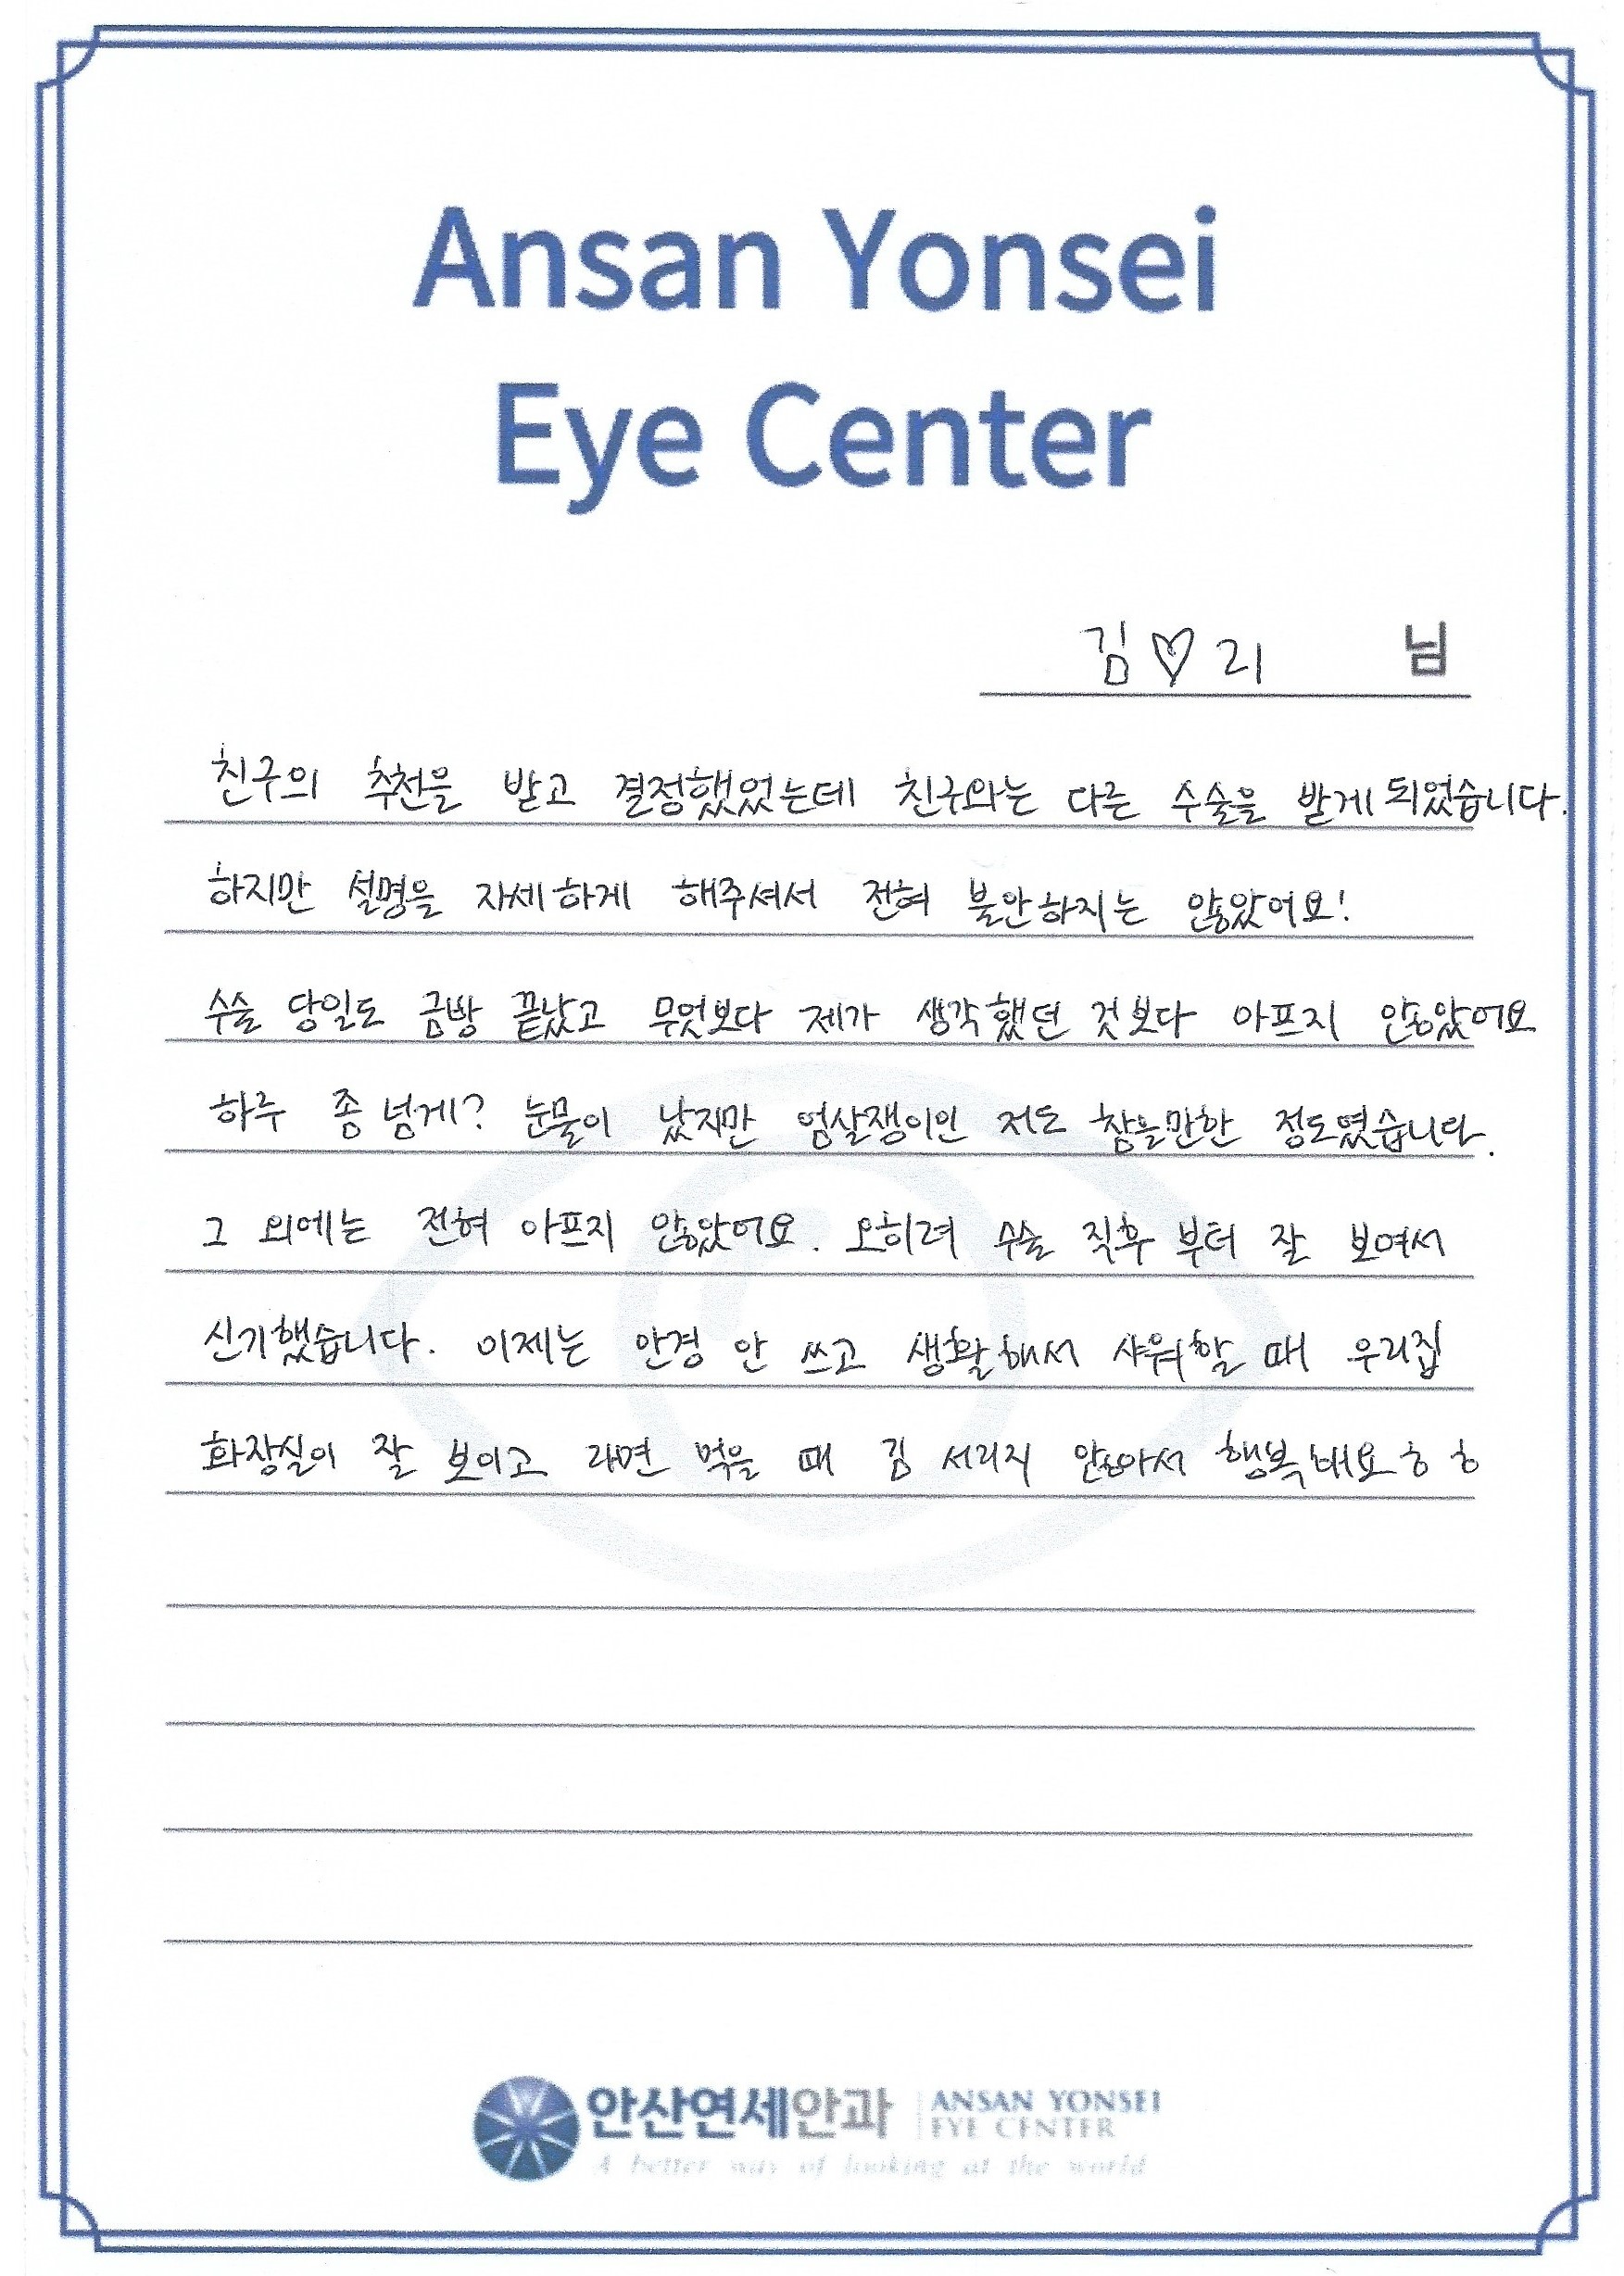 Ansan Yonsei
Eye Center
김♡리 님
친구의 추천을 받고 결정했었는데 친구와는 다른 수술을 받게 되었습니다.
하지만 설명을 자세하게 해주셔서 전혀 불안하지는 않았어요!
수술 당일도 금방 끝났고 무엇보다 제가 생각했던 것보다 아프지 않았어요
하루 좀 넘게? 눈물이 났지만 엄살쟁이인 저도 참을만한 정도였습니다.
그 외에는 전혀 아프지 않았어요. 오히려 수술 직후 부터 잘 보여서
신기했습니다. 이제는 안경 안 쓰고 생활해서 샤워할 때 우리집
화장실이 잘 보이고 라면 먹을 때 김 서리지 않아서 행복해요ㅎㅎ
안산연세안과 ANSAN YONSEI
EYE CENTER
A better way of looking at the world